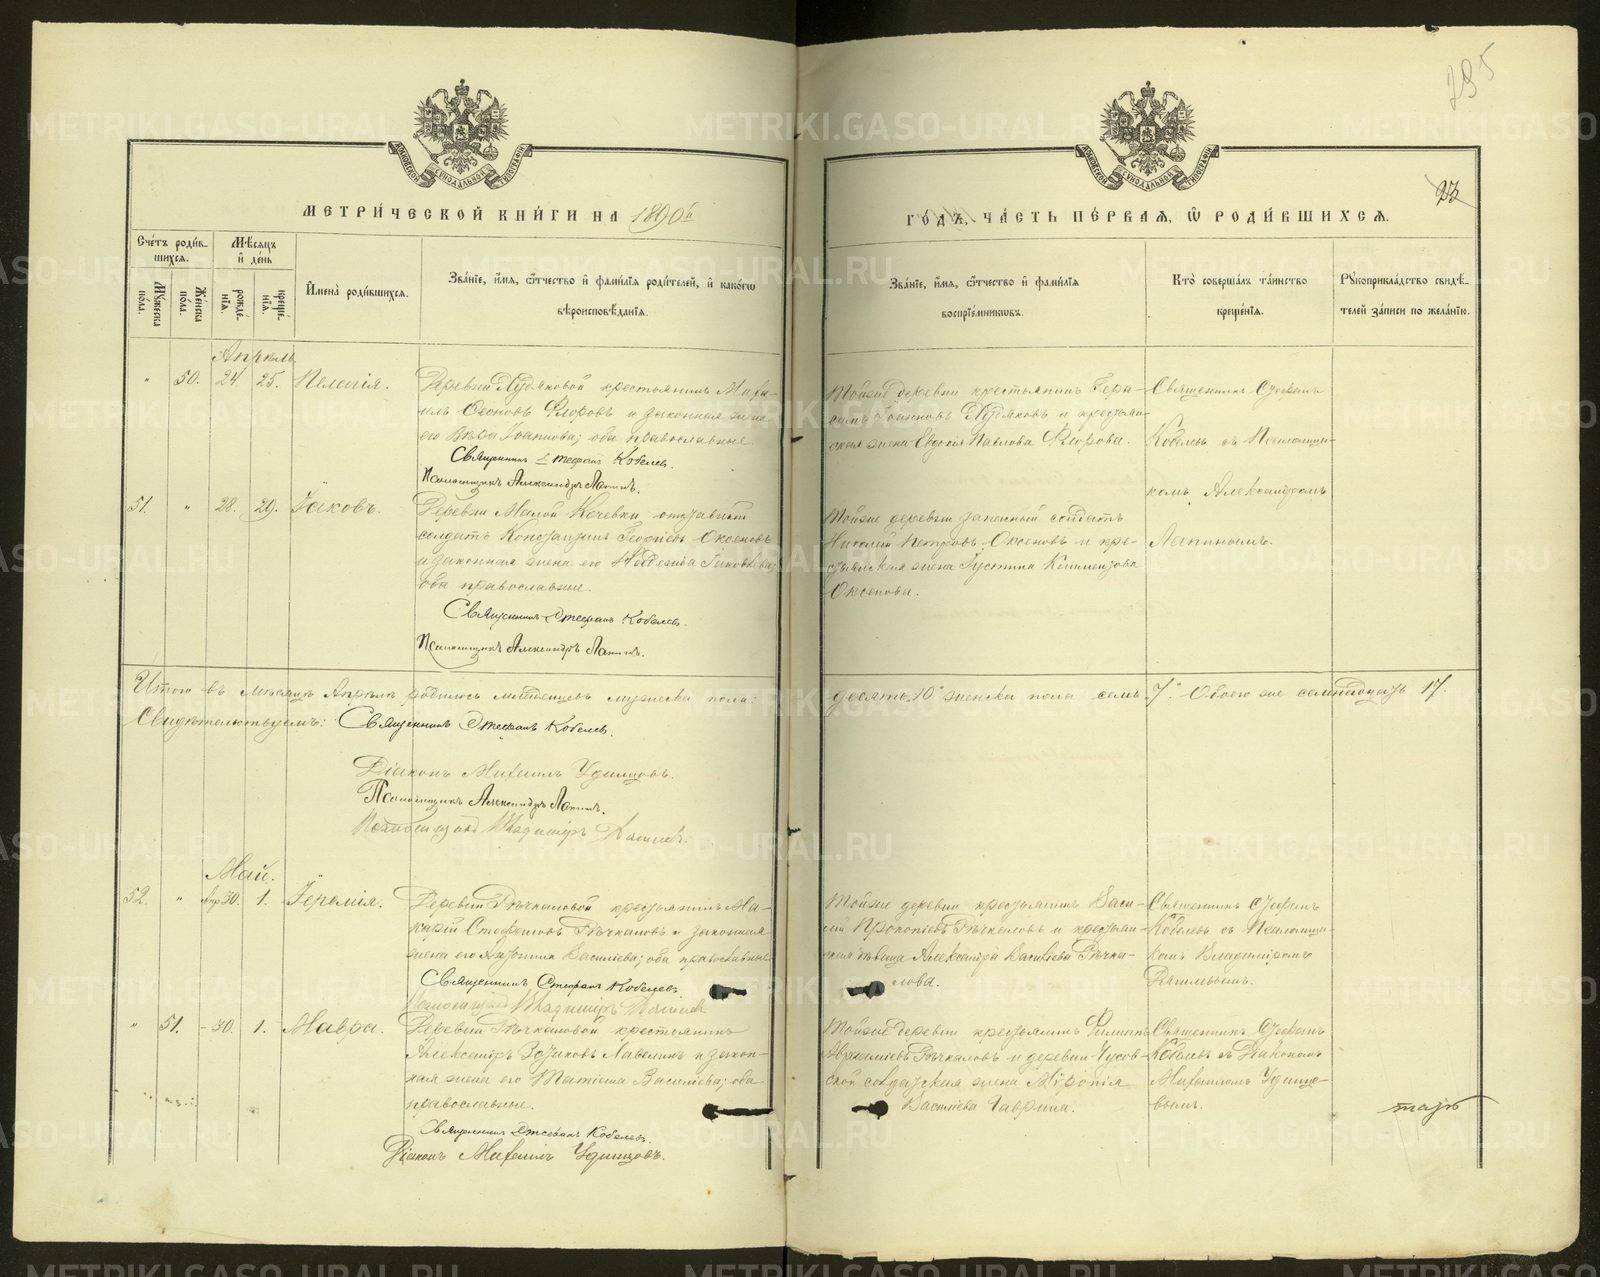 295
23
МЕТРИ́ЧЕСКОЙ КНИ́ГИ НА 1890й
ГО́ДЪ, ЧА́СТЬ ПЕ́РВАЯ, Ѽ РОДИ́ВШИХСЯ.
Сче́тъ роди́в-
шихся.
Му́жеска по́ла.
Же́нска по́ла.
Мѣ́сяцъ и де́нь
рожде́-
нія.
креще́-
нія.
Имена̀ роди́вшихся.
Зва́ніе, и́мя, ѻ҆́тчество и фами́лія роди́телей, и како́гѡ
вѣроисповѣ́данія.
Зва́ніе, и́мя, ѻ҆́тчество и фами́лія
воспріе́мникѡвъ.
Кто̀ соверша́лъ та́инство
креще́нія.
Рукоприкла́дство свидѣ́-
телей за́писи по жела́нію.
Апрѣль
" 50. 24 25. Пелагія.
Деревни Худяковой крестьянинъ Миха-
илъ Флоровъ и законная жена
его Вѣра Іоаннова; оба православные
Священникъ Стефанъ Кобелев.
Псаломщикъ Александръ Лапинъ.
Тойже деревни крестьянинъ Гера-
симъ Худяковъ и крестьян-
ская жена Евдокія Павлова Флорова.
Священникъ Стефанъ
Кобелевъ съ Псаломщи-
комъ Александромъ
Лапинымъ.
51. " 28. 29. Іаковъ.
Деревни Малой Кочевки, отставной
солдатъ Константинъ Оксеновъ
и законная жена его Надежда Іаковлева,
оба православные.
Священникъ Стефанъ Кобелев.
Псаломщикъ Александръ Лапинъ.
Тойже деревни запасный солдатъ
Николай Петровъ Оксеновъ и кре-
стьянская жена Іустина Климентова
Оксенова.
Итого въ мѣсяцѣ Апрѣлѣ родилось младенцевъ мужеска пола:
десять 10. женска пола семь 7. Обоего же семнадцать 17.
Свидѣтельствуемъ: Священникъ Стефанъ Кобелев.
Діаконъ Михаилъ Удинцовъ.
Псаломщикъ Александръ Лапинъ.
Владиміръ
Май.
52. " Апр 30. 1. Іеремія.
Деревни Рѣчкаловой крестьянинъ Ма-
карій Стефановъ Рѣчкаловъ и законная
жена его Антонина Василіева; оба православные
Священникъ Стефанъ Кобелев.
Владиміръ
Тойже деревни крестьянинъ Васи-
лій Прокопіевъ Рѣчкаловъ и крестьян-
ская дѣвица Александра Василіева Рѣчка-
лова.
Священникъ Стефанъ
Кобелевъ съ Псаломщи-
комъ Владиміромъ
" 51. - 30. 1. Мавра.
Деревни Рѣчкаловой крестьянинъ
Александръ Зотиковъ и закон-
ная жена его Татіана Василіева; оба
православные.
Священникъ Стефанъ Кобелев.
Діаконъ Михаилъ Удинцовъ.
Тойже деревни крестьянинъ Филиппъ
Рѣчкаловъ и деревни Чусов-
ской солдатская жена Міропія
Василіева Гаврина.
Священникъ Стефанъ
Кобелевъ съ Діакономъ
Михаиломъ Удинцо-
вымъ.
METRIKI.GASO-URAL.RU